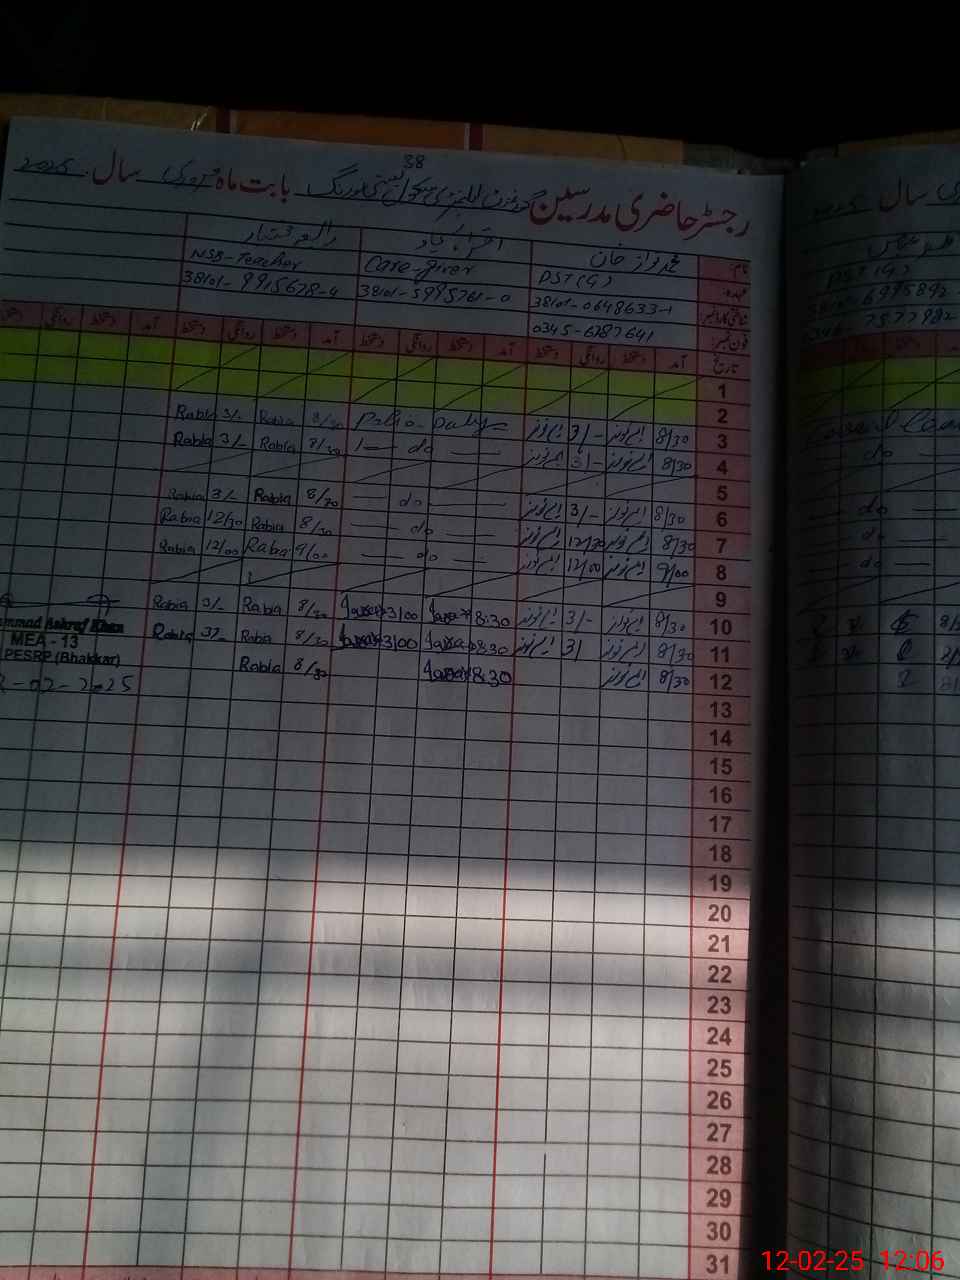 38
رجسٹر حاضری مدرسین بابت ماہ فروری سال 2025
نام: محمد نواز خان اقراء
عہدہ: PST(G) Care-giver NSB-Teacher
38101-0648633-1 38101-5995761-0 38101-9915678-4
فون نمبر: 0345-6787641
تاریخ آمد دستخط روانگی دستخط آمد دستخط روانگی دستخط آمد دستخط روانگی دستخط آمد دستخط روانگی دستخط
1
2
3 8/30 ایم نواز 3/- ایم نواز Polio Duty 8/30 Rabia 3/- Rabia
4 8/30 ایم نواز 3/- ایم نواز do 8/30 Rabia 3/- Rabia
5
6 8/30 ایم نواز 3/- ایم نواز do 8/30 Rabia 3/- Rabia
7 8/30 ایم نواز 12/30 ایم نواز do 8/30 Rabia 12/30 Rabia
8 9/00 ایم نواز 12/00 ایم نواز do 9/00 Rabia 12/00 Rabia
9
10 8/30 ایم نواز 3/- ایم نواز 8:30 3/00 8/30 Rabia 3/- Rabia
11 8/30 ایم نواز 3/ ایم نواز 8:30 3/00 8/30 Rabia 3/- Rabia
12 8/30 ایم نواز 8:30 8/30 Rabia
13
14
15
16
17
18
19
20
21
22
23
24
25
26
27
28
29
30
31
mmad Ashraf Khan
MEA - 13
PESRP (Bhakkar)
2-02-2025
سال
PST(G)
do
do
do
do
12-02-25 12:06